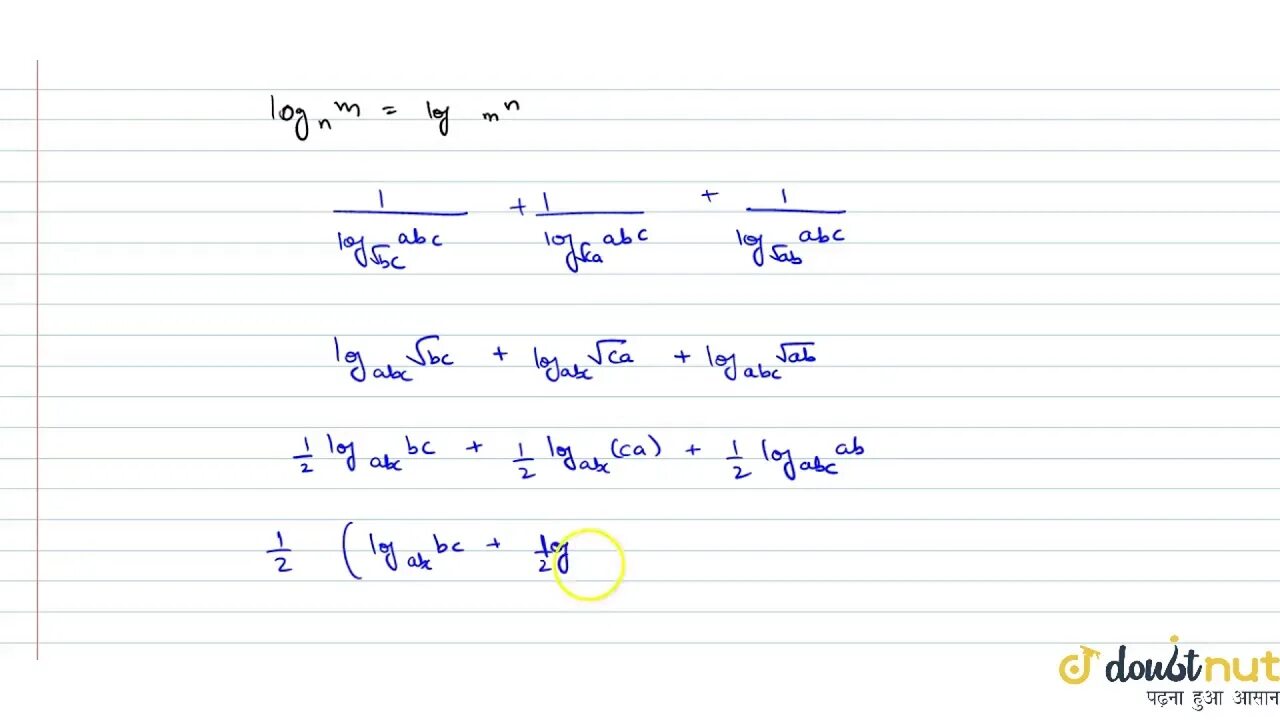 log_n m = log m^n
1/(log_√bc abc) + 1/(log_√ca abc) + 1/(log_√ab abc)
log_abc √bc + log_abc √ca + log_abc √ab
1/2 log_abc bc + 1/2 log_abc (ca) + 1/2 log_abc ab
1/2 ( log_abc bc + 1/2 log
doubtnut
पढ़ना हुआ आसान